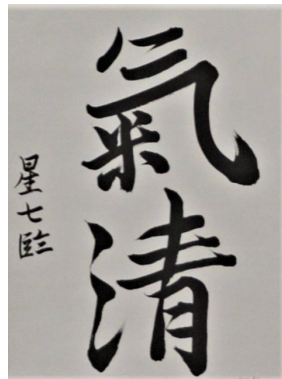 氣清
星七臨